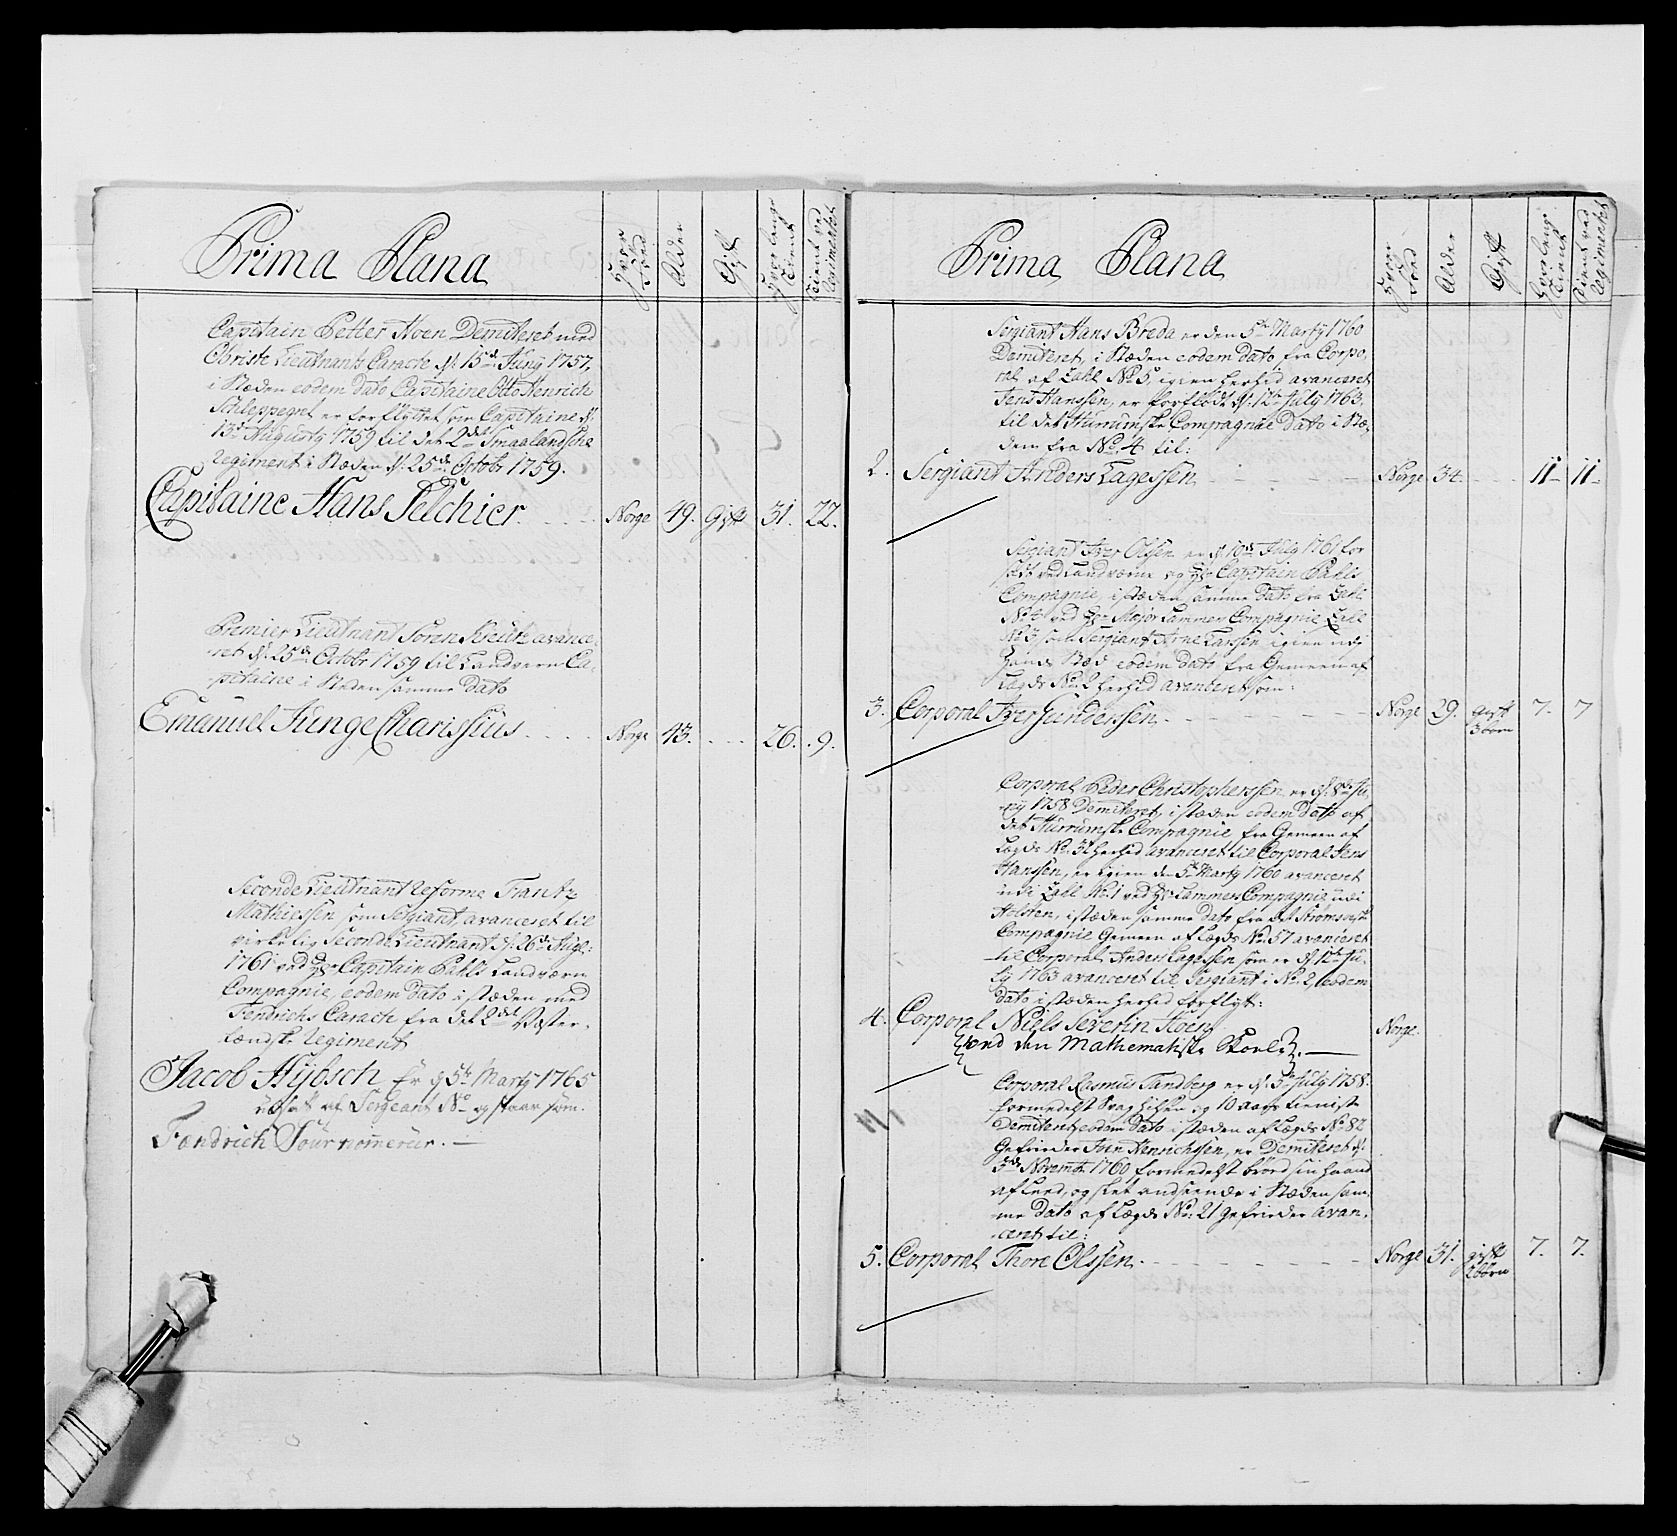 Prima Plana
Hvor Fød
Alder
Gift
Hvor lenge Tient
Tient ved Regimentet
Capitain Petter Koen Demiteret med
Obriste Lieutnants Caracte d: 15de Juny 1757,
i Stæden eodem dato Capitaine Otto Henrich
Schleppegrel er forflyttet som Capitaine d:
13de Augusty 1759 til det 2det Smaalandsche
Regiment i Stæden d: 25de Octobr 1759.
Capitaine Hans Selchier. Norge 49. Gift 31. 22.
Premier Lieutnant Søren Kreütz avance-
ret d: 25de Octobr 1759 til Landvern Ca-
pitaine i Steden samme Dato
Emanuel Junge Charissius Norge 43. 26. 9.
Seconde Lieutnant Reforme Frantz
Mathiessen som Sergiant, avanceret til
virkelig Seconde Lieutnant d: 26de Aug:
1761 ved Hr Capitain Pahls Landværn
Compagnie, eodem dato i stæden med
Fendrichs Carach fra det 2det Væster-
lendske Regiment
Jacob Hybsch Er d 5te Marty 1765
udsatt af Sergeant No og staar som
Fændrich Sournomerür. —
Prima Plana
Hvor Fød
Alder
Gift
Hvor lenge Tient
Tient ved Regimentet
Sergiant Hans Breda er den 5te Marty 1760
Demiteret, i Stæden eodem Dato fra Corpo-
ral af Tahl No 5, igien herhid avanceret
Jens Hanssen, er forflødt d: 12te July 1763.
til det Hurrumske Compagnie Dato i Stæ-
den fra No. 4 til:
2. Sergiant Anders Lagessen Norge 34. 11 11
Sergiant Iver Olsen er d: 10de July 1761 for
sadt ved Landværne og Hr Capitain Pahls
Compagnie, i stæden samme Dato fra Tahl
No 4 ved Hr Major Lammers Compagnie Tahl
No 3 som Sergiant Arne Larsen igien udi
Hands Stæd eodem dato fra Gemeen af
Lægds No. 2 herhid avanceret som:
3. Corporal Iver Gunderssen Norge 29. gift 3 børn 7. 7
Corporal Peder Christopherssen er d: 8de Ju-
ny 1758 Demiteret, i stæden eodem Dato af
det Hurrumske Compagnie fra Gemeen af
Lægds No. 31 herhid avanceret til Corporal Jens
Hanssen, er igien den 5te Marty 1760 avanceret
udi Tahl No. 1 ved Hr Lammers Compagnie udi
Holsten, i stæden samme Dato fra det Strømsøeske
Compagnie Gemeen af Lægds No. 57 avanceret
til Corporal Anders Lagessen som er d: 12te Ju-
ly 1763 avanceret til Sergiant i No. 2, eodem
Dato i stæden herhid forflyt:
4. Corporal Niels Severin Koen Norge
ved den Mathematiske Skoele. —
Corporal Rasmus Tandberg er d: 5te July 1758.
formedelst Svaghisen og 10 aars tieniste
Demitert, eodem Dato i stæden af Lægds No 82
Gefrieder Joen Henrichssen, er Demiteret d:
3de Novembr 1760 formedelst brød sin haand
af Leed, og slet andseende i Stæden sam-
me Dato af Lægds No: 21 gefrieder avan-
cert til:
5. Corporal Thore Olssen. Norge 31. gift 2 børn 7. 7.